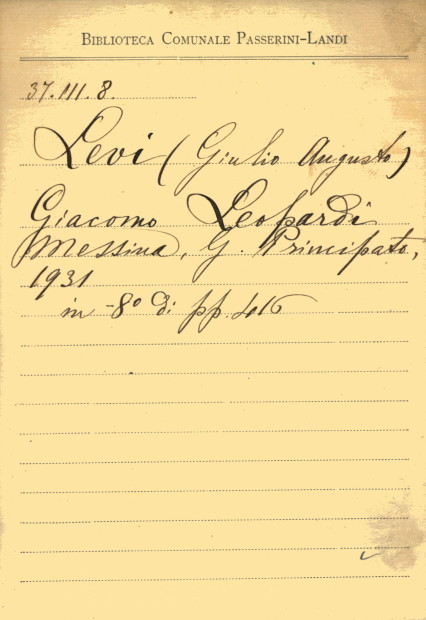 BIBLIOTECA COMUNALE PASSERINI-LANDI
37.III.8.
Levi (Giulio Augusto)
Giacomo Leopardi
Messina, G. Principato,
1931
in -8° di pp. 416